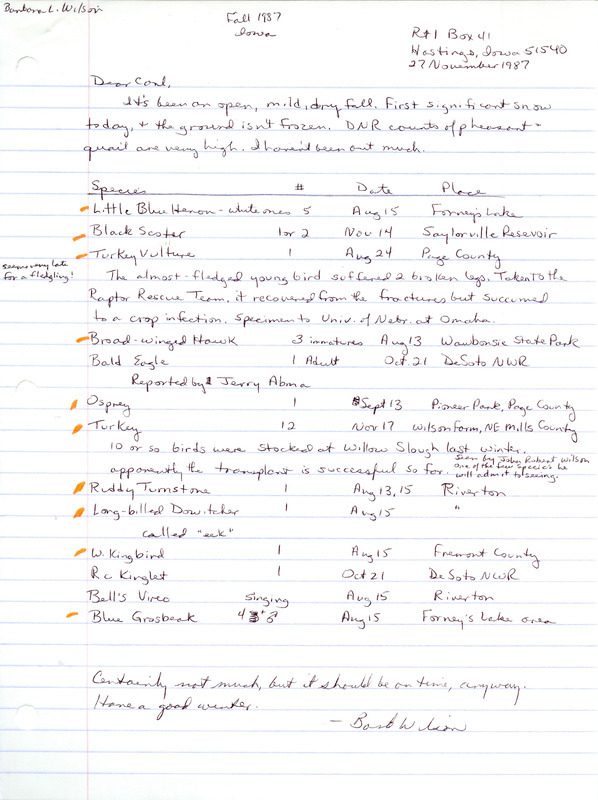 Barbara L. Wilson
Fall 1987
Iowa
R#1 Box 41
Hastings, Iowa 51540
27 November 1987
Dear Carl,
It's been an open, mild, dry fall. First significant snow
today, + the ground isn't frozen. DNR counts of pheasant +
quail are very high. I haven't been out much.
Species # Date Place
Little Blue Heron - white ones 5 Aug 15 Forney's Lake
Black Scoter 1 or 2 Nov 14 Saylorville Resevoir
Turkey Vulture 1 Aug 24 Page County
seems very late
for a fledgling!
The almost-fledged young bird suffered 2 broken legs. Taken to the
Raptor Rescue Team, it recovered from the fractures but succumed
to a crop infection. Specimen to Univ. of Nebr. at Omaha.
Broad-winged Hawk 3 immatures Aug 13 Wawbonsie State Park
Bald Eagle 1 Adult Oct. 21 DeSoto NWR
Reported by Jerry Abma
Osprey 1 Sept 13 Pioneer Park, Page County
Turkey 12 Nov 17 Wilson Farm, NE Mills County
10 or so birds were stocked at Willow Slough last winter.
apparently the transplant is successful so far.
Seen by John Robert Wilson
One of the few species he
will admit to seeing.
Ruddy Turnstone 1 Aug 13, 15 Riverton
Long-billed Dowitcher 1 Aug 15 "
called "eek"
W. Kingbird 1 Aug 15 Fremont County
R c Kinglet 1 Oct 21 DeSoto NWR
Bell's Vireo singing Aug 15 Riverton
Blue Grosbeak 4 ♂ Aug 15 Forney's Lake area
Certainly not much, but it should be on time, anyway.
Have a good winter.
— Barb Wilson